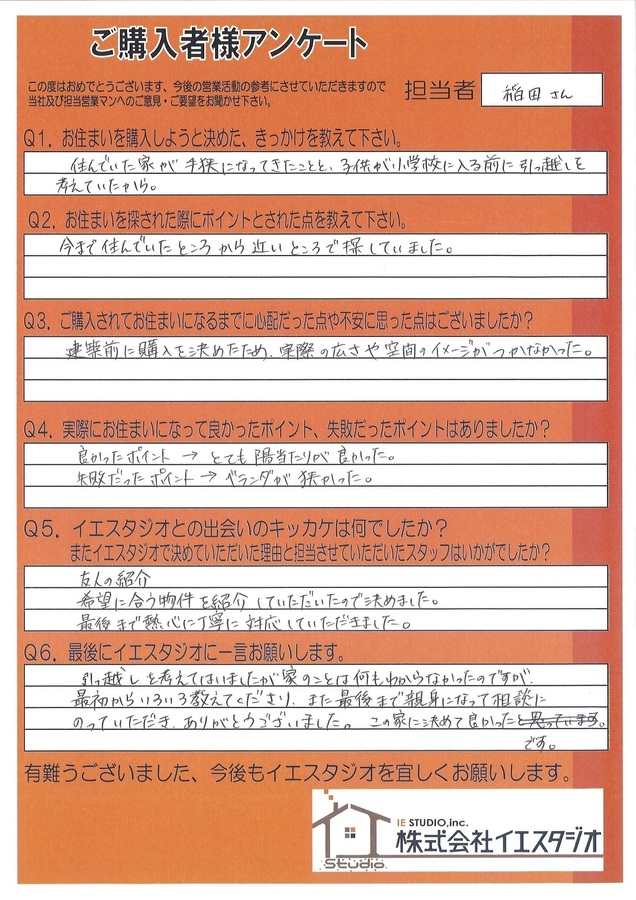 ご購入者様アンケート
この度はおめでとうございます、今後の営業活動の参考にさせていただきますので
当社及び担当営業マンへのご意見・ご要望をお聞かせ下さい。
担当者 稲田さん
Q1．お住まいを購入しようと決めた、きっかけを教えて下さい。
住んでいた家が手狭になってきたことと、子供が小学校に入る前に引っ越しを
考えていたから。
Q2．お住まいを探された際にポイントとされた点を教えて下さい。
今まで住んでいたところから近いところで探していました。
Q3．ご購入されてお住まいになるまでに心配だった点や不安に思った点はございましたか？
建築前に購入を決めたため、実際の広さや空間のイメージがつかなかった。
Q4．実際にお住まいになって良かったポイント、失敗だったポイントはありましたか？
良かったポイント → とても陽当たりが良かった。
失敗だったポイント → ベランダが狭かった。
Q5．イエスタジオとの出会いのキッカケは何でしたか？
またイエスタジオで決めていただいた理由と担当させていただいたスタッフはいかがでしたか？
友人の紹介
希望に合う物件を紹介していただいたので決めました。
最後まで熱心に丁寧に対応していただきました。
Q6．最後にイエスタジオに一言お願いします。
引っ越しを考えてはいましたが家のことは何もわからなかったのですが、
最初からいろいろ教えてくださり、また最後まで親身になって相談に
のっていただき、ありがとうございました。この家に決めて良かったと思っています。
です。
有難うございました、今後もイエスタジオを宜しくお願いします。
IE STUDIO,inc.
株式会社イエスタジオ
Studio